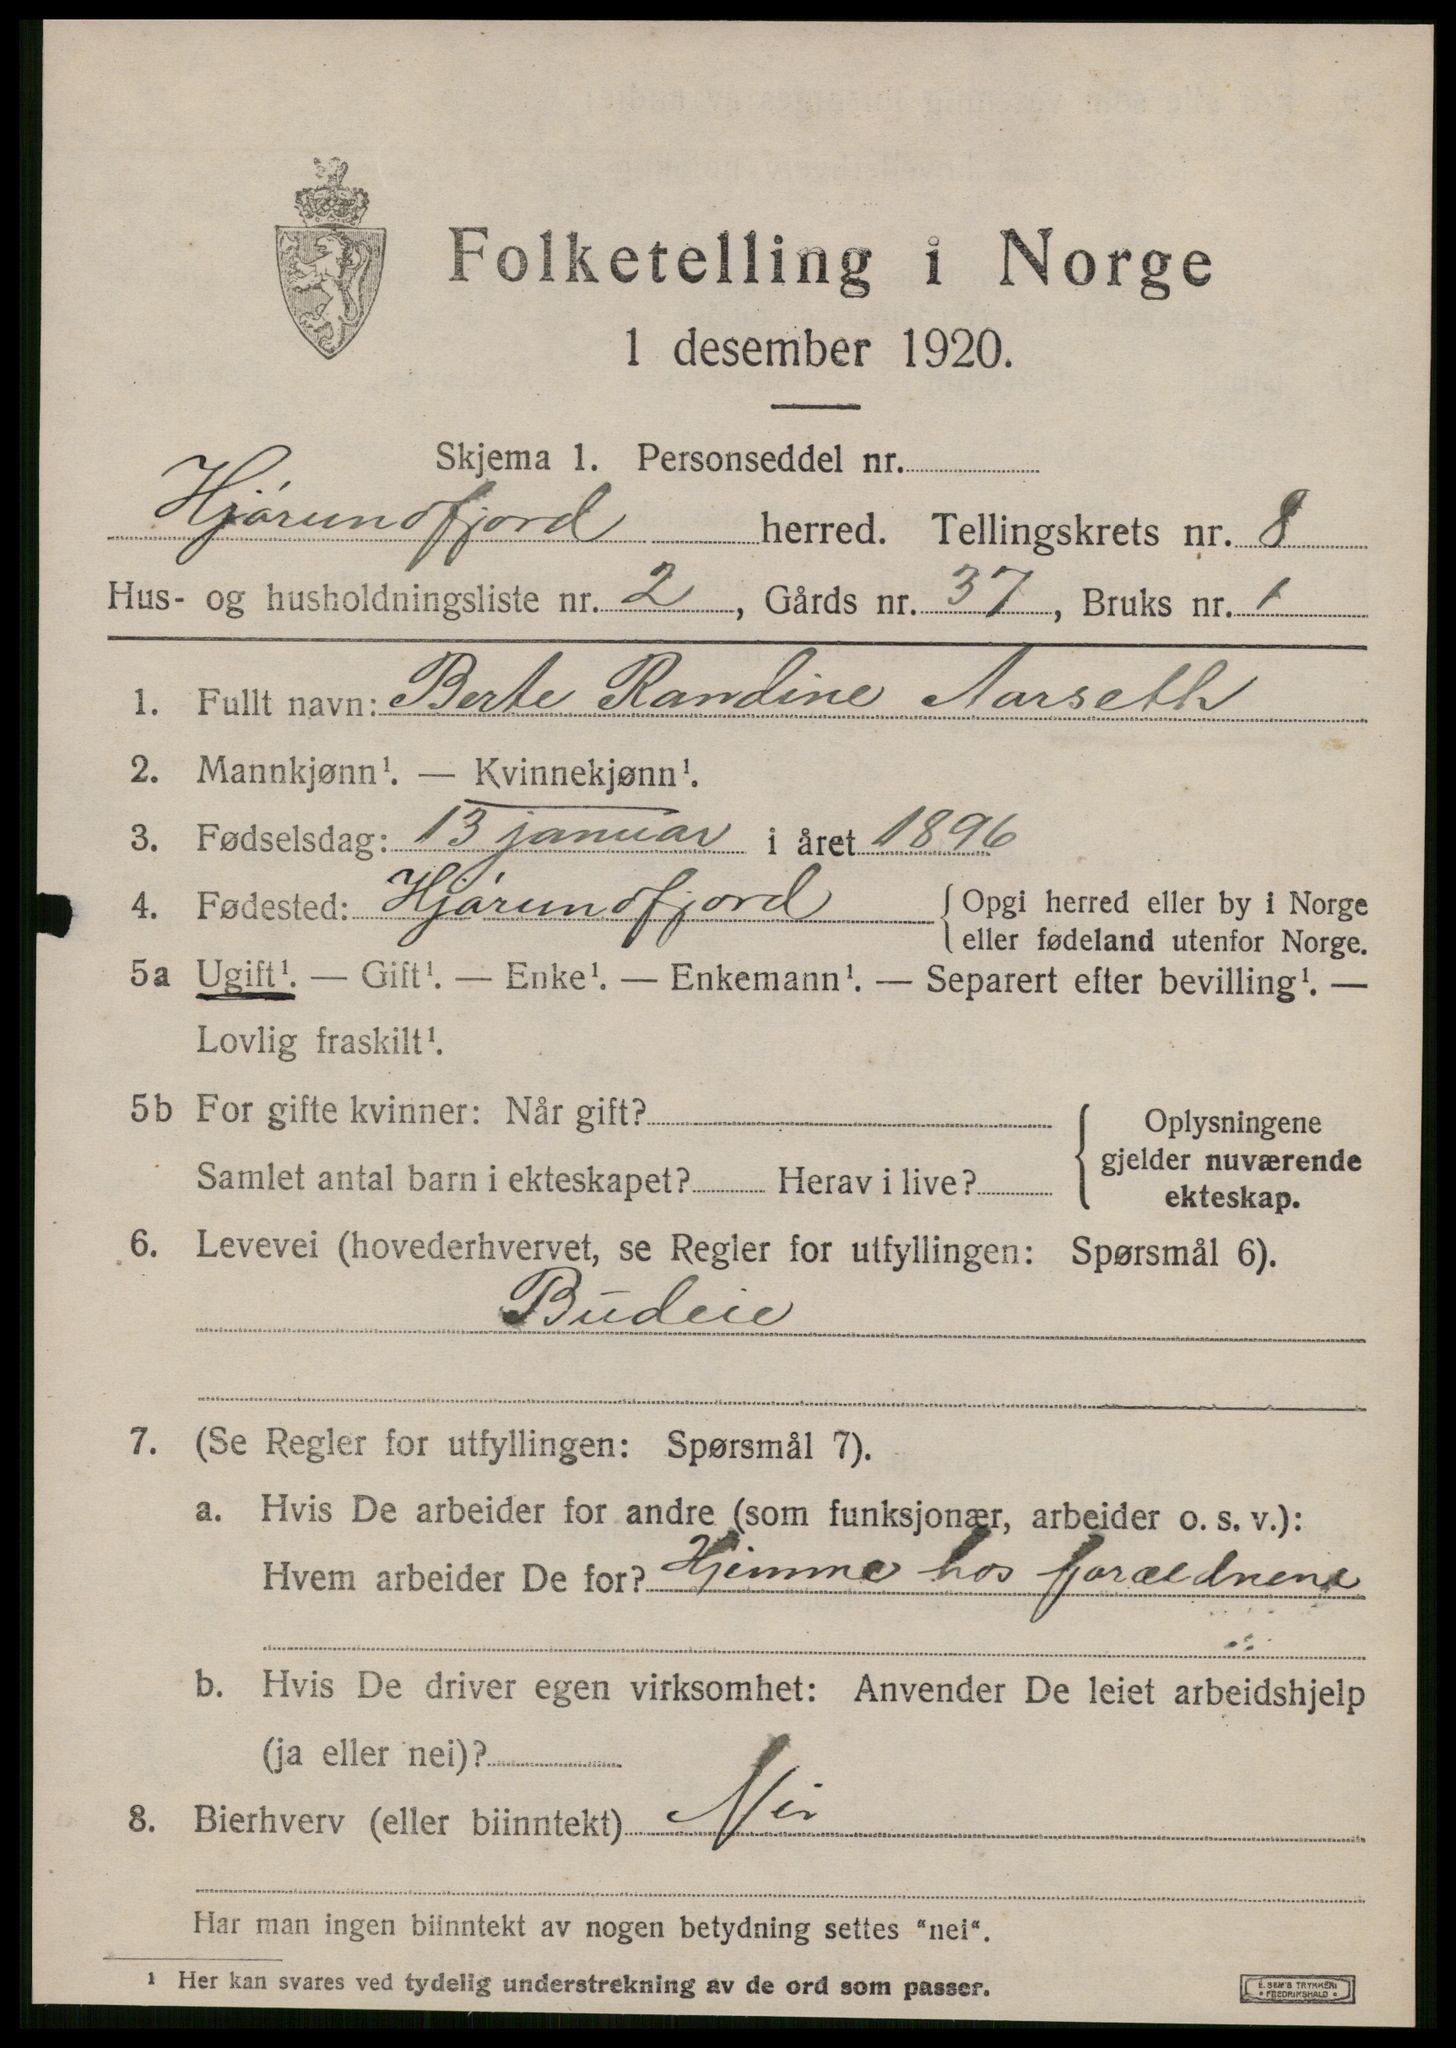 Folketelling i Norge
1 desember 1920.
Skjema 1. Personseddel nr.
Hjørundfjord herred. Tellingskrets nr. 8
Hus- og husholdningsliste nr. 2, Gårds nr. 37, Bruks nr. 1
1. Fullt navn: Berte Randine Aarseth
2. Mannkjønn¹. — Kvinnekjønn¹.
3. Fødselsdag: 13 januar i året 1896
4. Fødested: Hjørundfjord { Opgi herred eller by i Norge
eller fødeland utenfor Norge.
5a Ugift¹. — Gift¹. — Enke¹. — Enkemann¹. — Separert efter bevilling¹. —
Lovlig fraskilt¹.
5b For gifte kvinner: Når gift?
Samlet antal barn i ekteskapet? Herav i live?
{ Oplysningene
gjelder nuværende
ekteskap.
6. Levevei (hovederhvervet, se Regler for utfyllingen: Spørsmål 6).
Budeie
7. (Se Regler for utfyllingen: Spørsmål 7).
a. Hvis De arbeider for andre (som funksjonær, arbeider o. s. v.):
Hvem arbeider De for? Hjemme hos foræeldnene
b. Hvis De driver egen virksomhet: Anvender De leiet arbeidshjelp
(ja eller nei)?
8. Bierhverv (eller biinntekt) Nei
Har man ingen biinntekt av nogen betydning settes "nei".
¹ Her kan svares ved tydelig understrekning av de ord som passer.
E. SEM'S TRYKKERI
• FREDRIKSHALD •